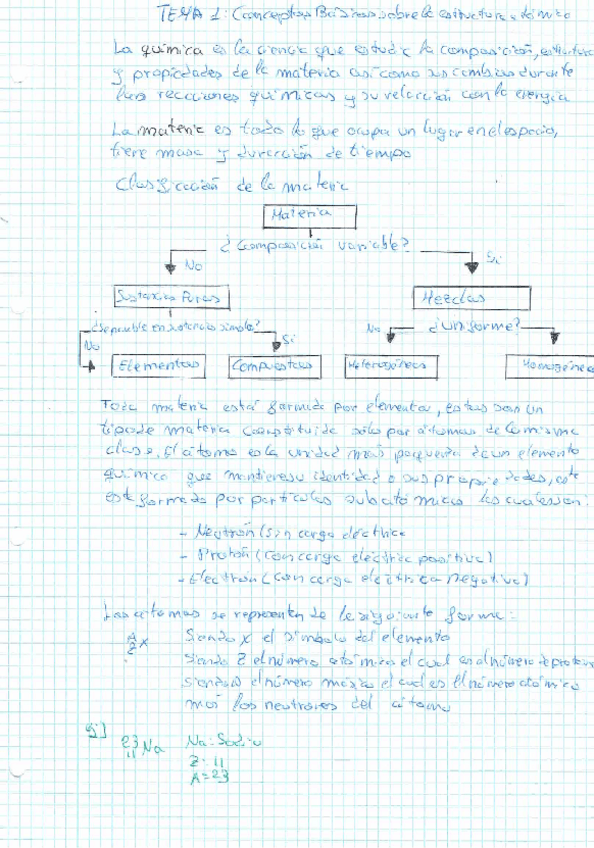 TEMA 1: Conceptos Básicos sobre la estructura atómica
La química es la ciencia que estudia la composición, estructura
y propiedades de la materia así como sus cambios durante
las reacciones químicas y su relación con la energía
La materia es todo lo que ocupa un lugar en el espacio,
tiene masa y duración de tiempo
Clasificación de la materia
Materia
¿Composición variable?
No
Si
Sustancias Puras
Mezclas
¿Separable en sustancias simples?
No
Si
No
¿Uniforme?
Elementos
Compuestos
Heterogéneas
Homogéneas
Toda materia está formada por elementos, estos son un
tipo de materia constituida sólo por átomos de la misma
clase. El átomo es la unidad más pequeña de un elemento
químico que mantiene su identidad o sus propiedades, este
está formado por partículas subatómicas las cuales son:
- Neutrón (sin carga eléctrica
- Protón (con carga eléctrica positiva)
- Electrón (con carga eléctrica negativa)
Los átomos se representan de la siguiente forma:
A
Z X
Siendo X el símbolo del elemento
Siendo Z el número atómico el cual es el número de protones
Siendo A el número másico el cual es el número atómico
más los neutrones del átomo
Ej]
23
11 Na
Na: Sodio
Z: 11
A=23